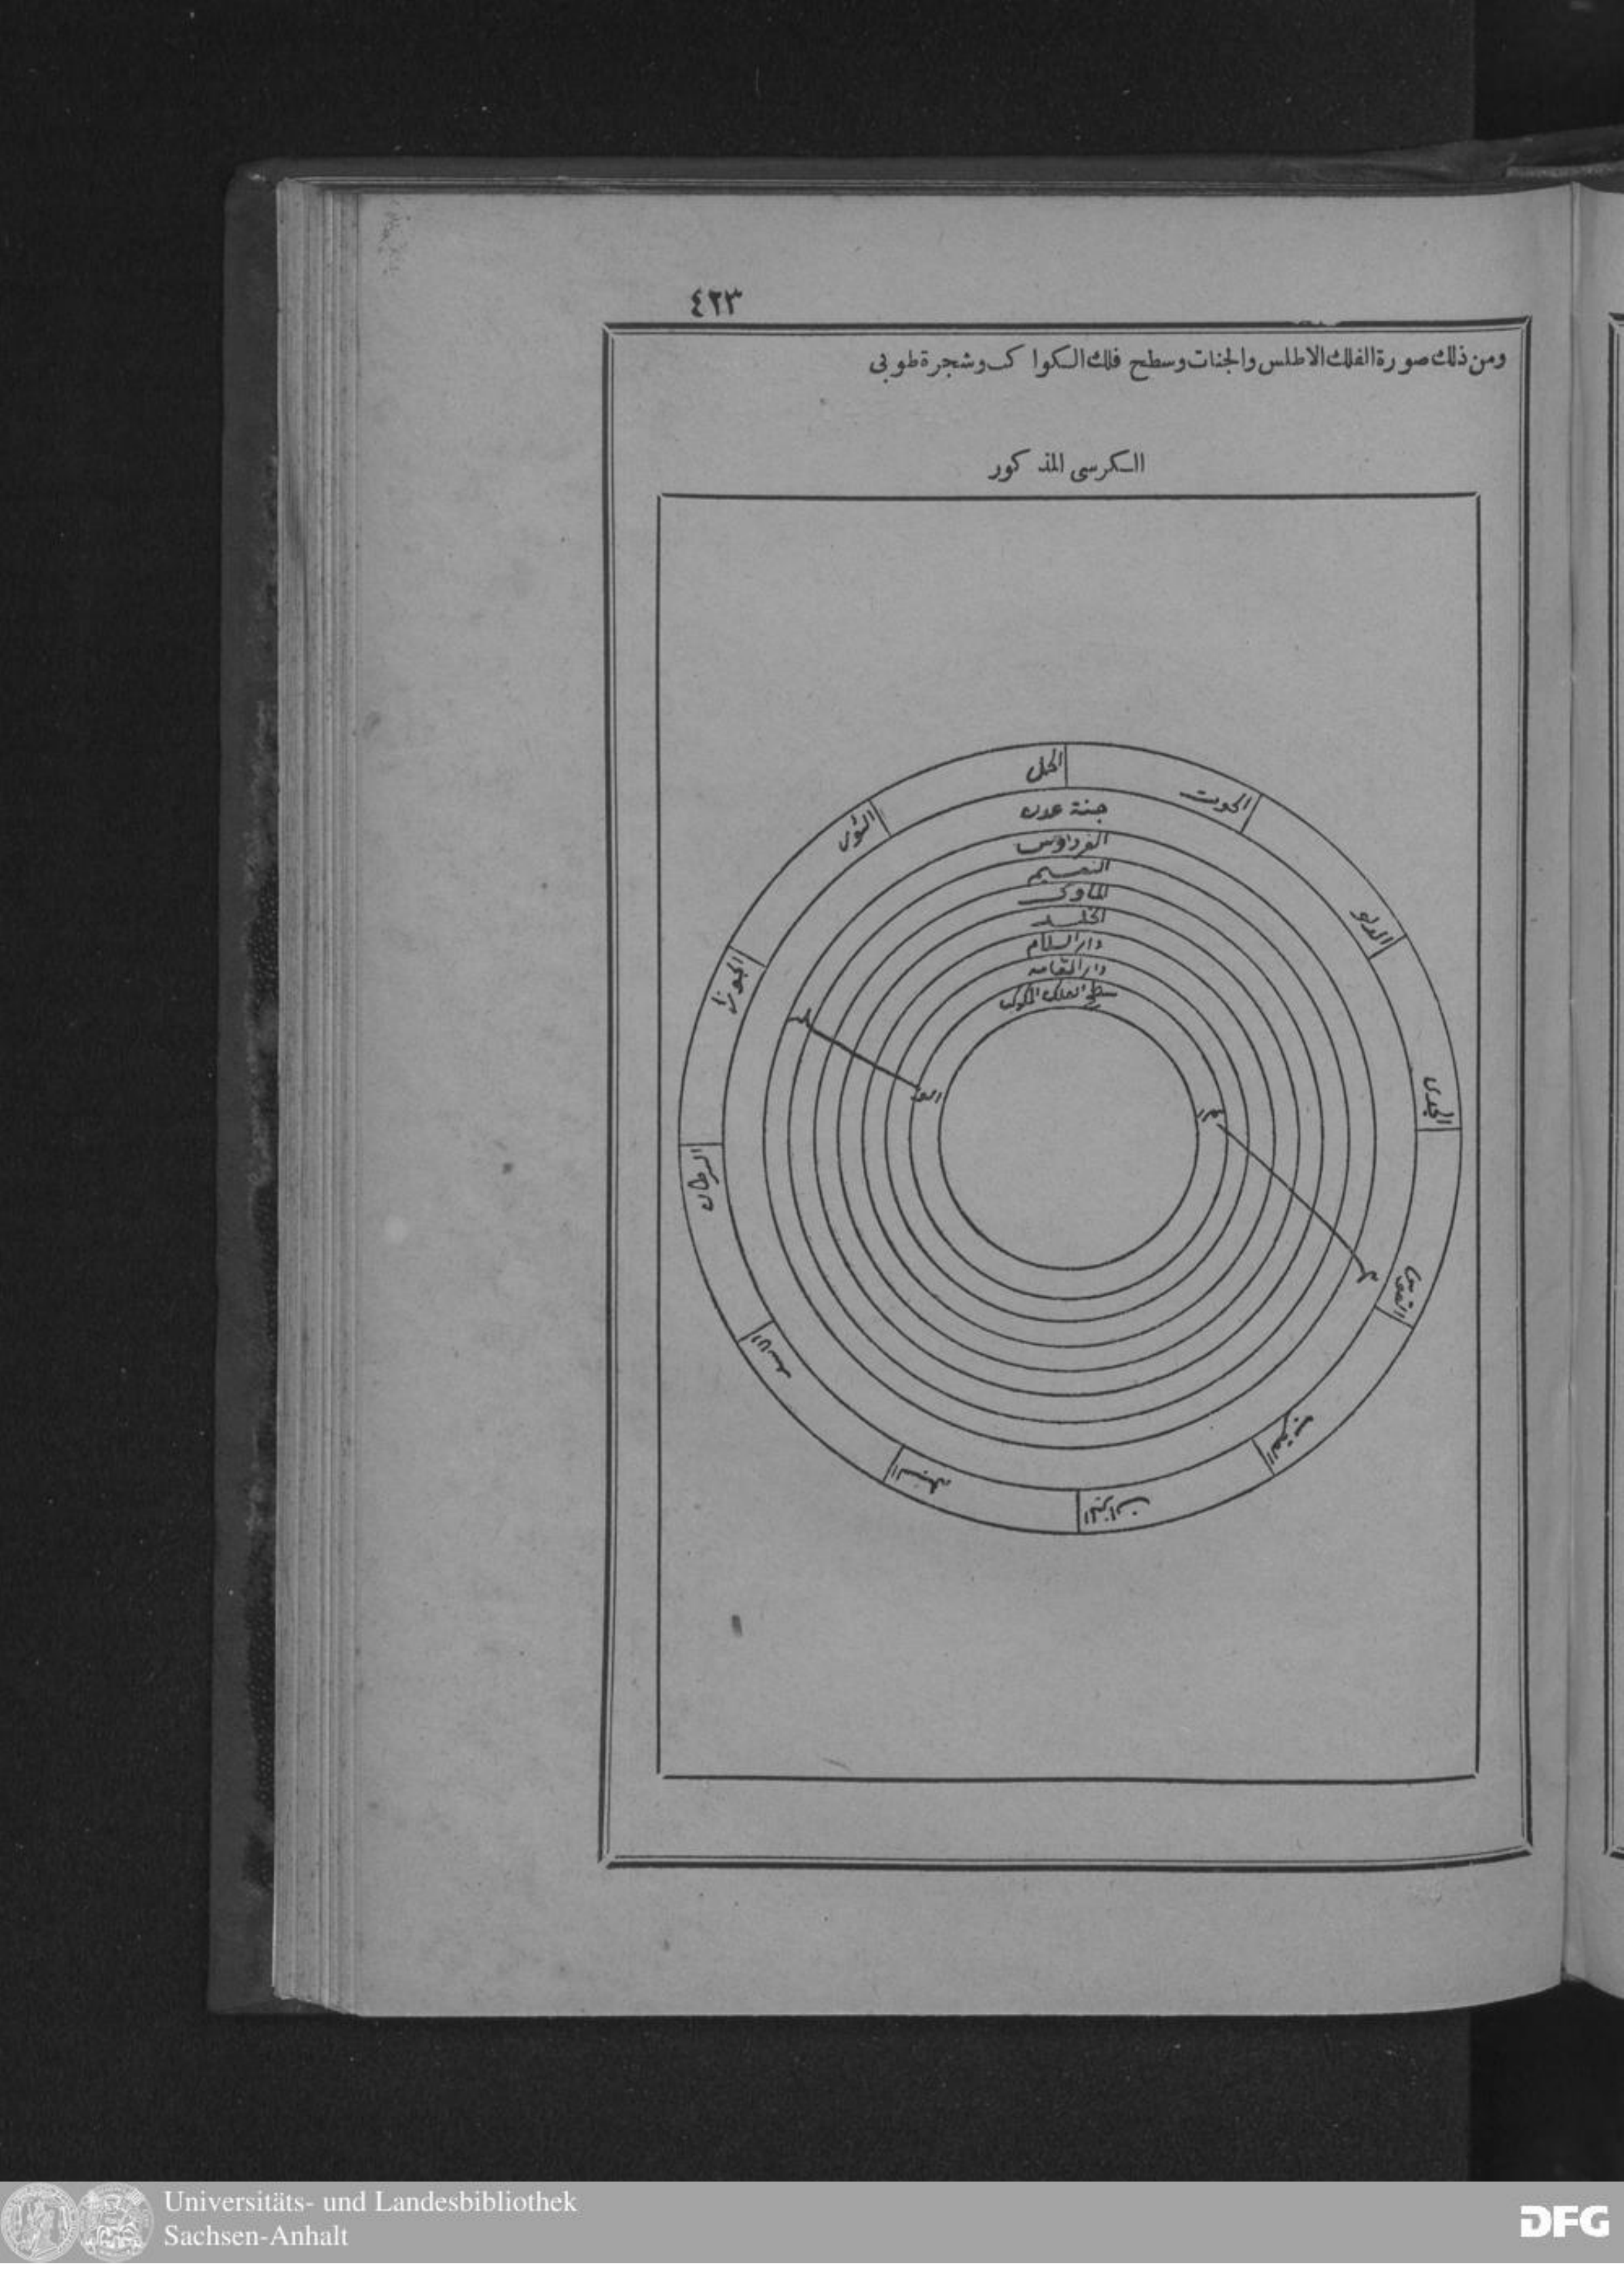 ٤٢٣
ومن ذلك صورة الفلك الاطلس والجنات وسطح فلك الكواكب وشجرة طوبى
الكرسى المذكور
الحمل
الحوت
الثور
الدلو
الجوزا
الجدى
السرطان
القوس
الاسد
العقرب
السنبله
الميزان
جنة عدن
الفردوس
النعيم
الماوى
الخلد
دار السلام
دار المقامه
سطح الفلك المكوكب
Universitäts- und Landesbibliothek
Sachsen-Anhalt
DFG